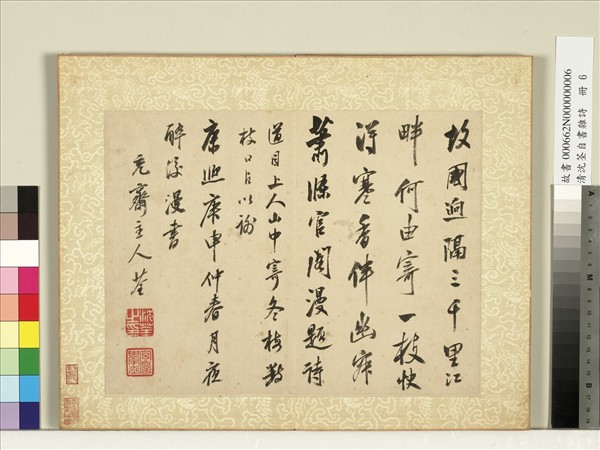 故國迥隔三千里江
畔何由寄一枝快
得寒香伴幽寂
蕭條官閣漫題詩
道目上人山中寄冬梅數
枝口占以謝
康熙庚申仲春月夜
醉後漫書
充齋主人荃
沈荃
之印
故書 000662N000000006
清沈荃自書雜詩 冊 6